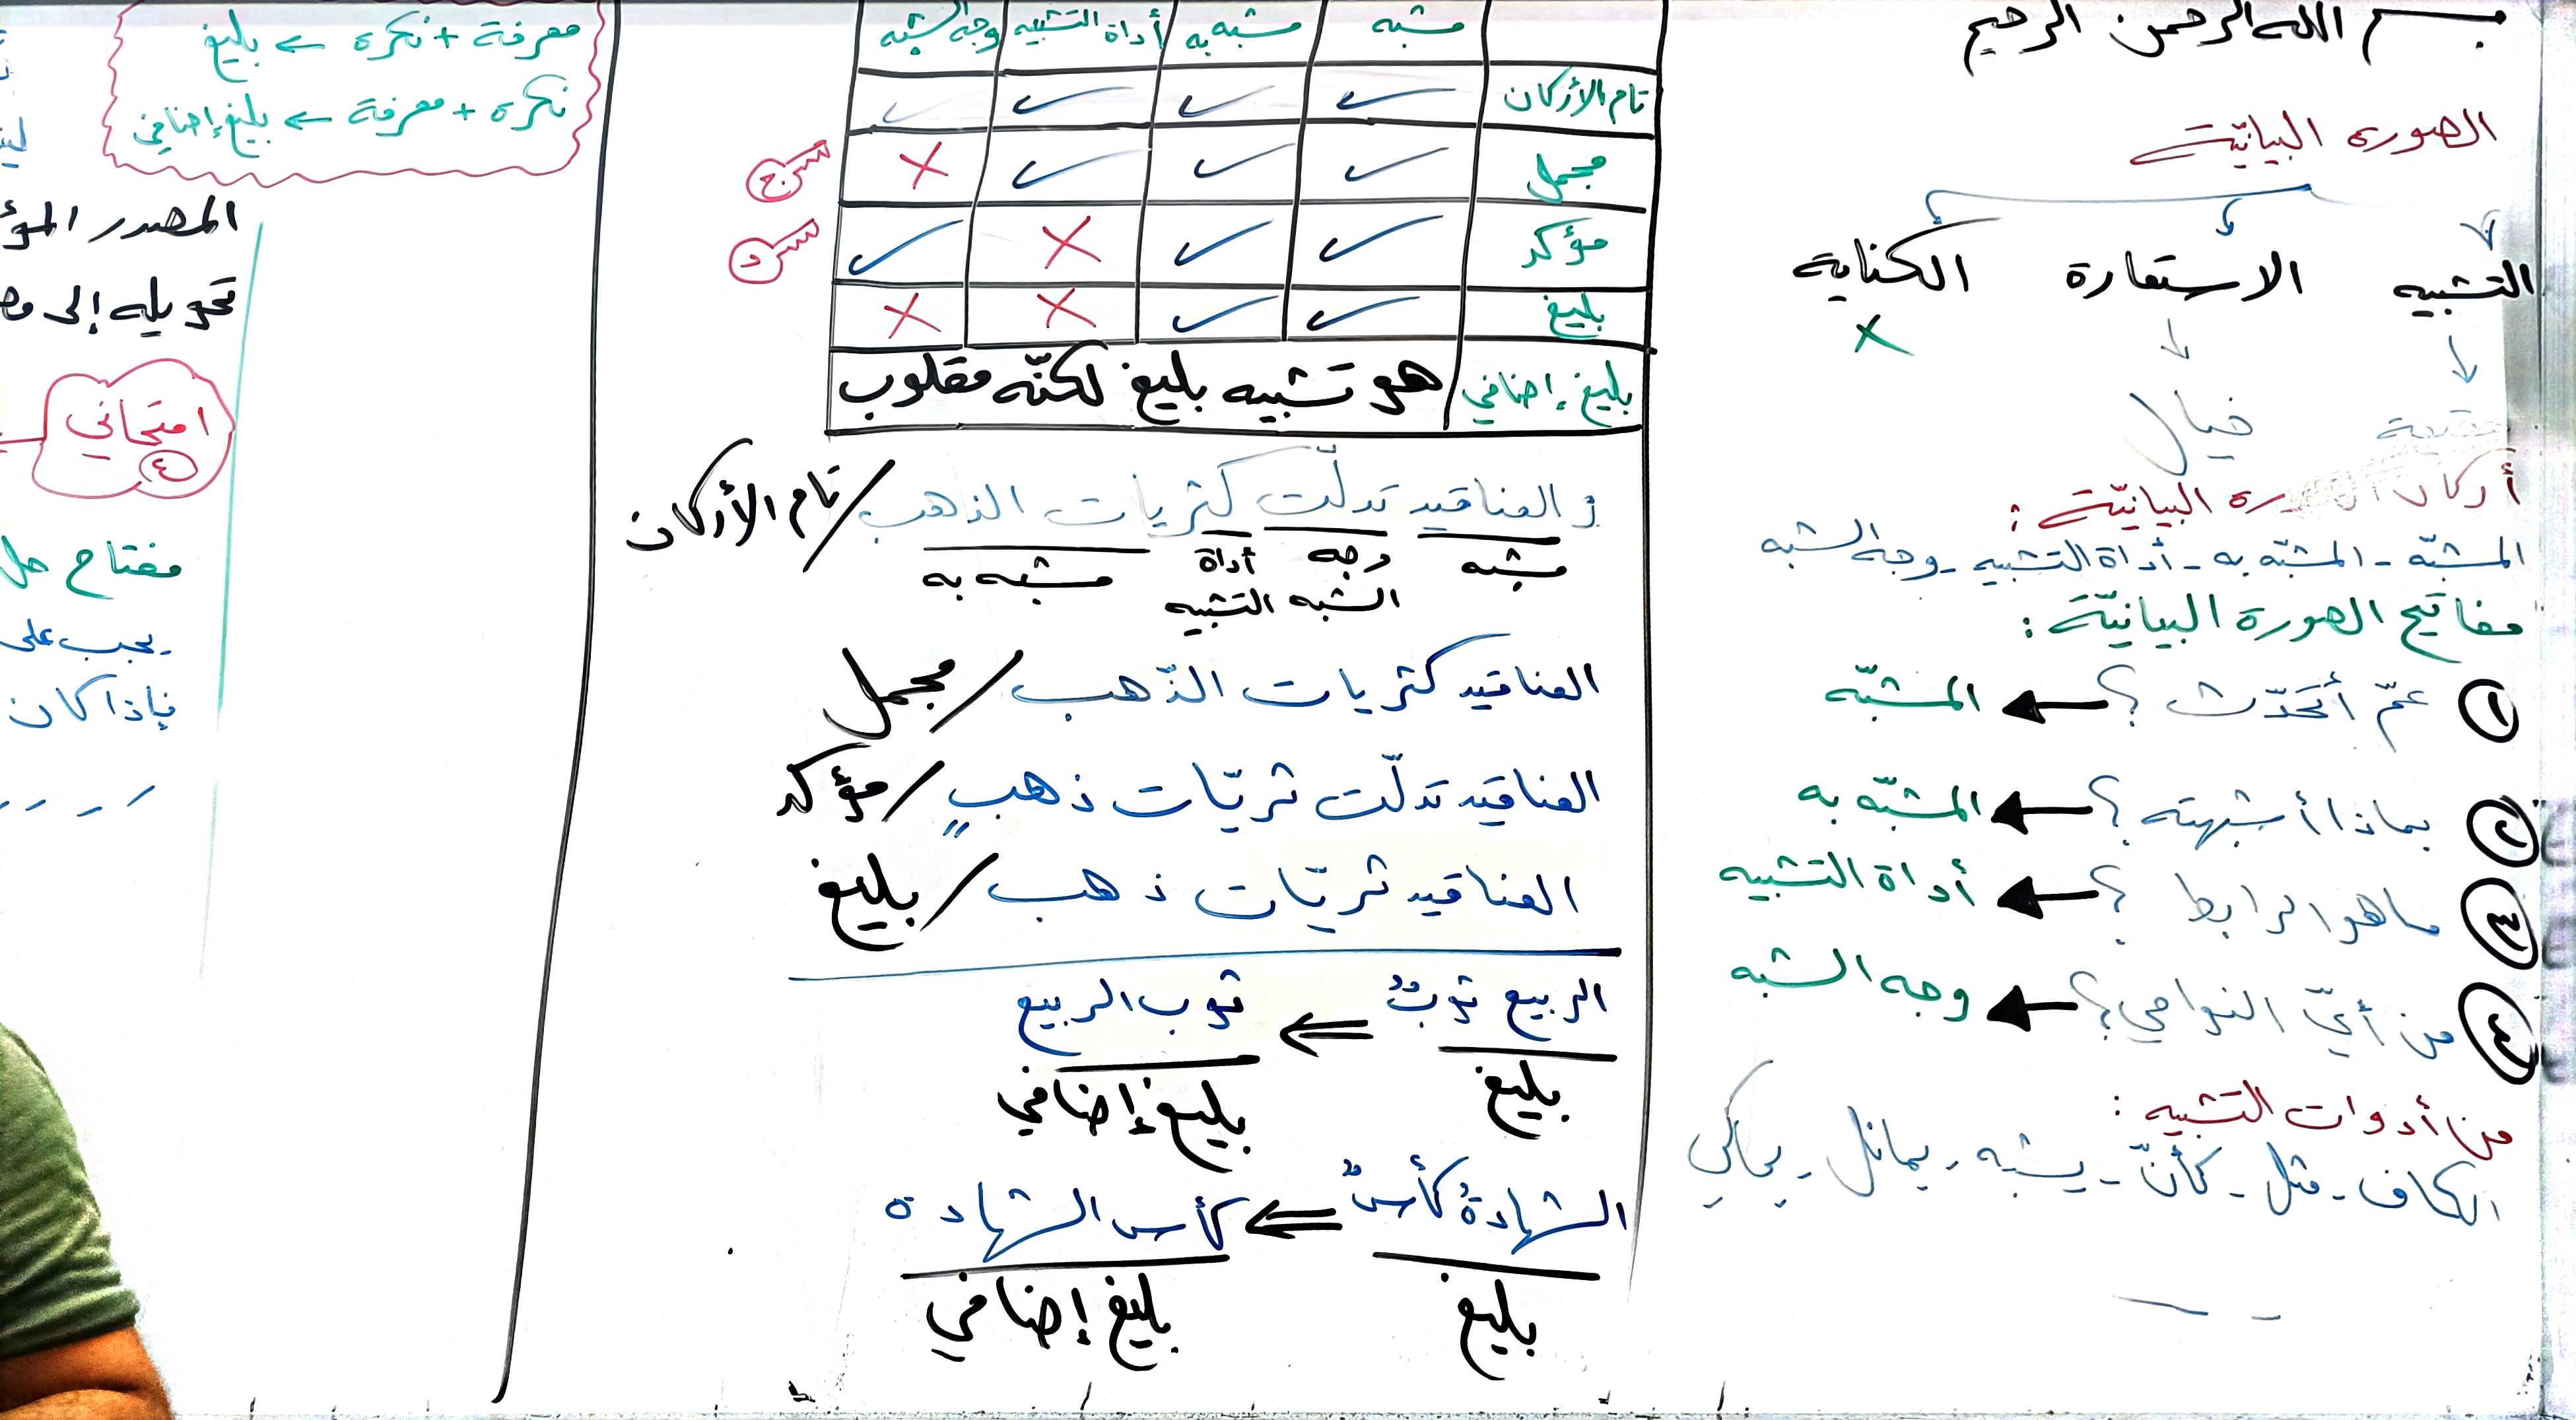 بسم الله الرحمن الرحيم
الصورة البيانيّة
التشبيه الاستعارة الكناية
خيال
أركان البيانيّة :
المشبّه - المشبّه به - أداة التشبيه - وجه الشبه
مفاتيح الصورة البيانيّة :
١ عمّ أتحَدّث ؟ ← المشبّه
٢ بماذا أشبهته ؟ ← المشبّه به
٣ ما هو الرابط ؟ ← أداة التشبيه
٤ من أيّ النواحي ؟ ← وجه الشبه
من أدوات التشبيه :
الكاف - مثل - كأنّ - يشبه - يماثل - يحاكي
مشبه مشبه به أداة التشبيه وجه الشبه
تام الأركان ✓ ✓ ✓ ✓
مجمل ✓ ✓ ✓ ✗ ج
مؤكد ✓ ✓ ✗ ✓ د
بليغ ✓ ✓ ✗ ✗
بليغ إضافي هو تشبيه بليغ لكنّه مقلوب
و العناقيد تدلّت كثريات الذهب / تام الأركان
مشبه وجه الشبه أداة التشبيه مشبه به
العناقيد كثريات الذّهب / مجمل
العناقيد تدلّت ثريّات ذهبٍ / مؤكد
العناقيد ثريّات ذهب / بليغ
الربيع ثوبٌ ⇐ ثوب الربيع
بليغ بليغ إضافي
الشهادةُ كأسٌ ⇐ كأس الشهادة
بليغ بليغ إضافي
معرفة + نكرة ← بليغ
نكرة + معرفة ← بليغ إضافي
المصدر
تحويله إلى
امتحاني
٤
مفتاح حل
يجب على
فإذا كان